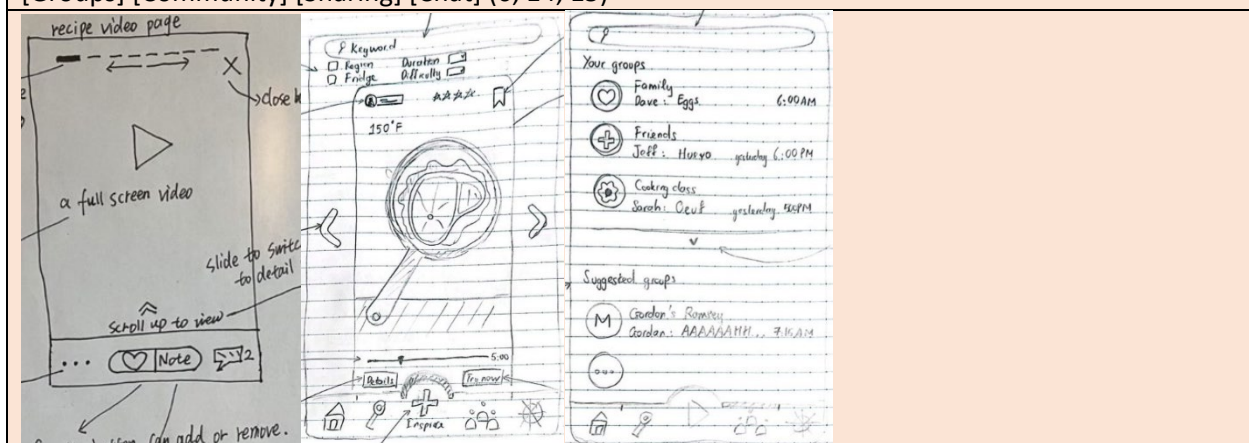 [Groups] [Community] [Sharing] [Chat]
recipe video page
X
close
a full screen video
slide to switc
to detail
scroll up to view
... Note 2
can add or remove.
Keyword
Region Duration
Fridge Difficulty
150°F
5:00
Details Try now
Inspire
Your groups
Family
Dave: Eggs 6:00AM
Friends
Jeff: yesterday 6:00PM
Cooking class
Sarah: Oeuf yesterday 5:00PM
Suggested groups
M Gordon's Ramsey
Gordon: AAAAAAHH... 7:15AM